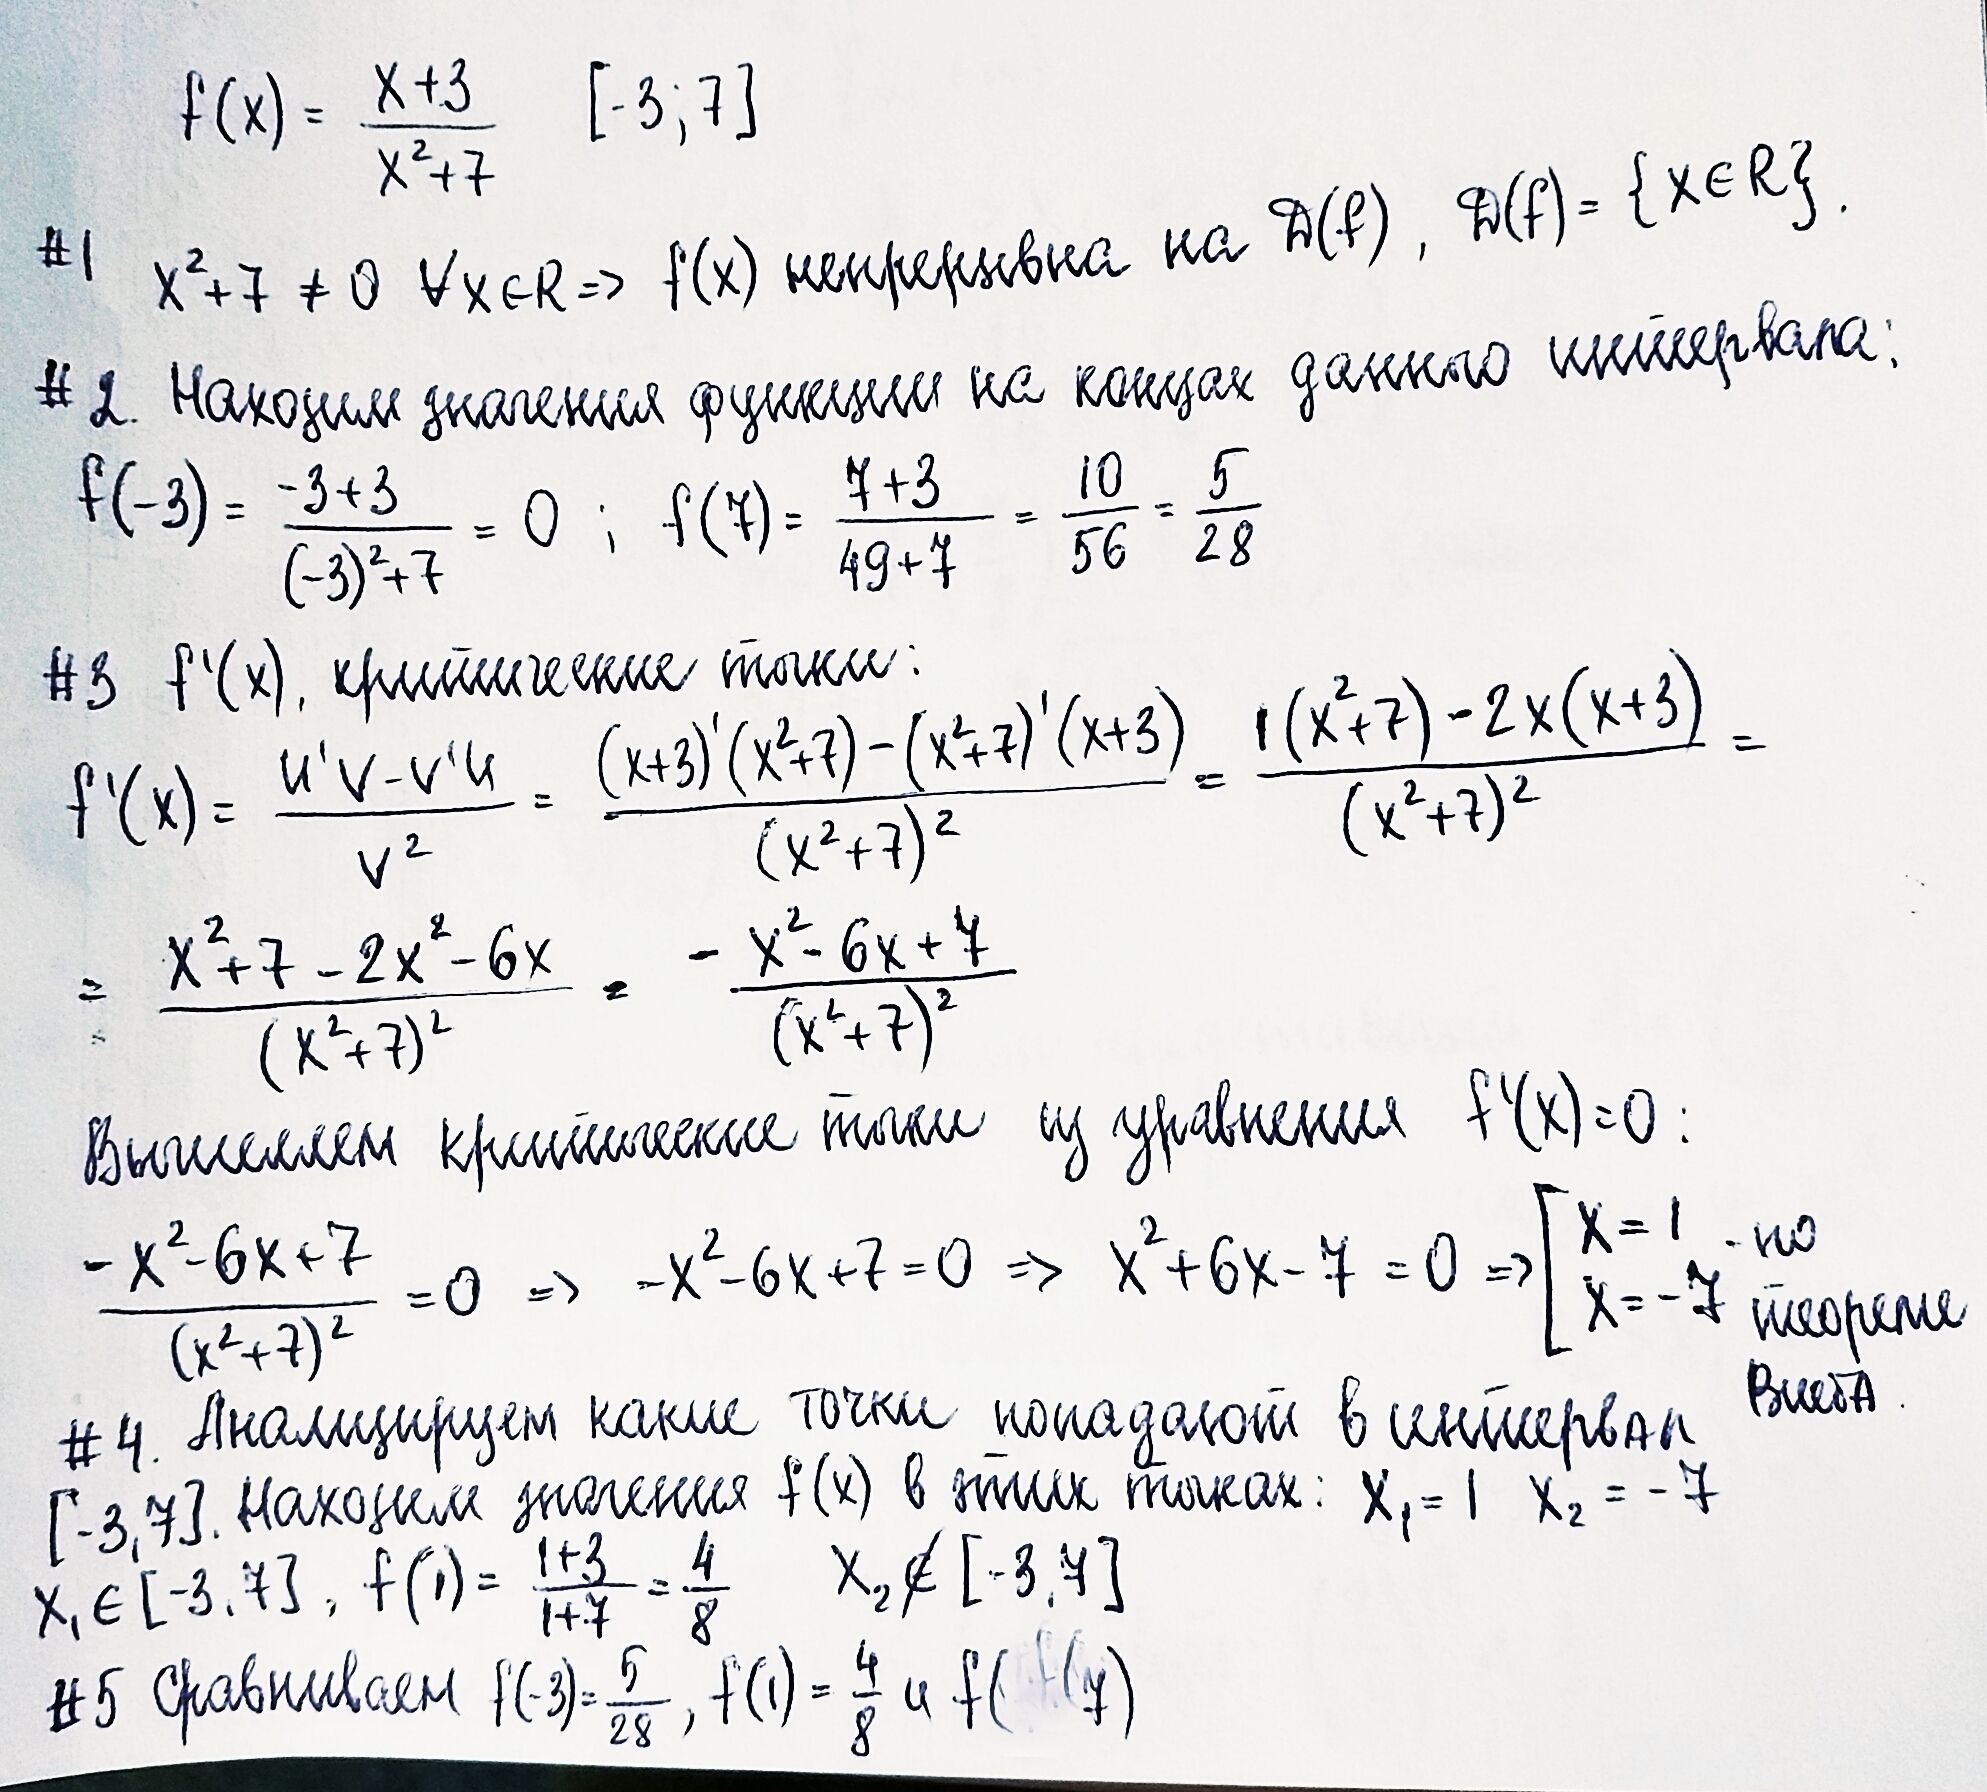 f(x) = (x+3)/(x²+7) [-3; 7]
#1 x²+7 ≠ 0 ∀x∈R => f(x) непрерывна на D(f), D(f) = {x∈R}.
#2. Находим значения функции на концах данного интервала:
f(-3) = (-3+3)/((-3)²+7) = 0 ; f(7) = (7+3)/(49+7) = 10/56 = 5/28
#3 f'(x), критические точки:
f'(x) = (u'v-v'u)/v² = ((x+3)'(x²+7)-(x²+7)'(x+3))/(x²+7)² = (1(x²+7)-2x(x+3))/(x²+7)² =
= (x²+7-2x²-6x)/(x²+7)² = - (x²-6x+7)/(x²+7)²
Вычисляем критические точки из уравнения f'(x)=0:
(-x²-6x+7)/(x²+7)² = 0 => -x²-6x+7=0 => x²+6x-7=0 => [x=1 x=-7 - по теореме Виета.
#4. Анализируем какие точки попадают в интервал
[-3,7]. Находим значения f(x) в этих точках: x₁=1 x₂=-7
x₁∈[-3,7], f(1) = (1+3)/(1+7) = 4/8 x₂∉[-3,7]
#5 Сравниваем f(-3)=5/28, f(1)=4/8 и f(7)